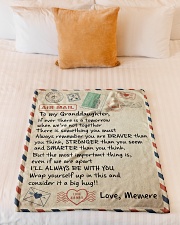 AIR MAIL
To my Granddaughter,
If ever there is a tomorrow
when we're not together
There is something you must
Always remember you are BRAVER than
you think, STRONGER than you seem
and SMARTER than you think.
But the most important thing is,
even if we are apart
I'LL ALWAYS BE WITH YOU.
Wrap yourself up in this and
consider it a big hug!!
Love, Memere